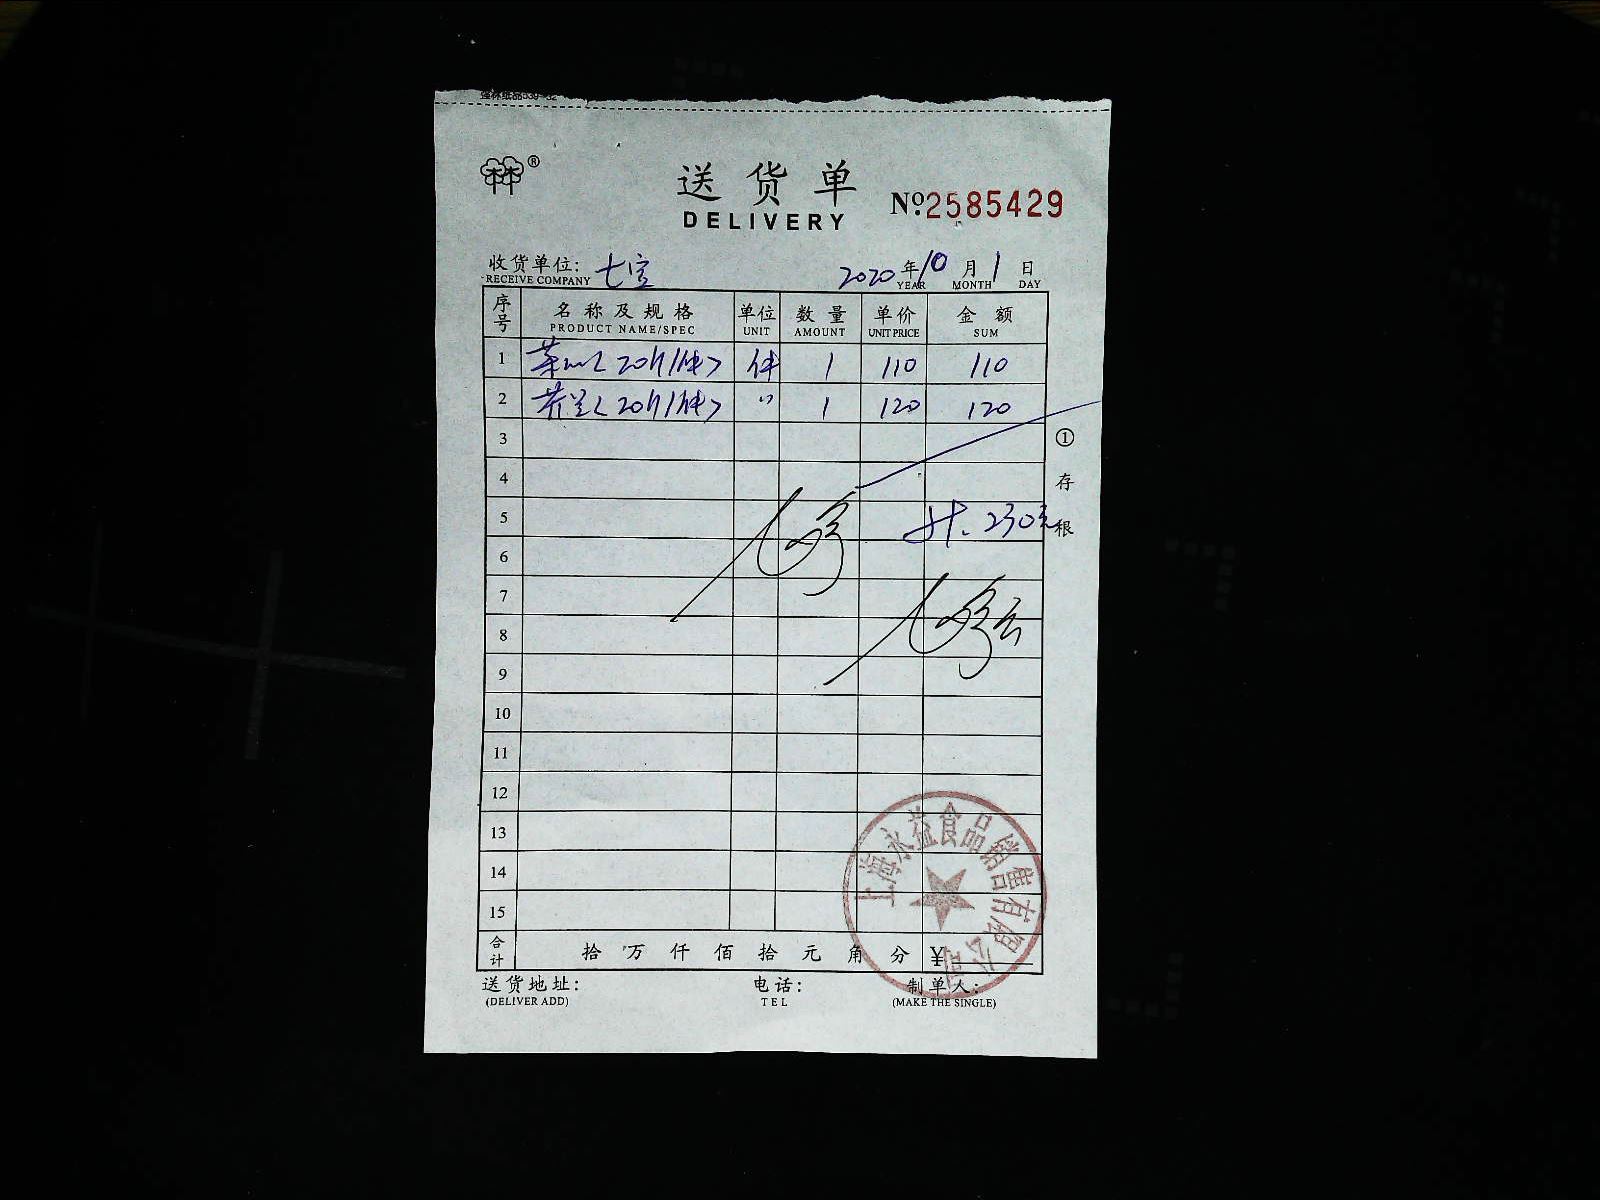 送货单
DELIVERY
№2585429
收货单位: 七宝
RECEIVE COMPANY
2020年10月1日
YEAR MONTH DAY
序号 名称及规格 单位 数量 单价 金额
PRODUCT NAME/SPEC UNIT AMOUNT UNIT PRICE SUM
1 菜心<20斤/件> 件 1 110 110
2 芥兰<20斤/件> 〃 1 120 120
3
4
5 计. 230元
6
7
8
9
10
11
12
13
14
15
①存根
合计 拾 万 仟 佰 拾 元 角 分 ¥
送货地址: 电话: 制单人:
(DELIVER ADD) TEL (MAKE THE SINGLE)
上海永益食品销售有限公司